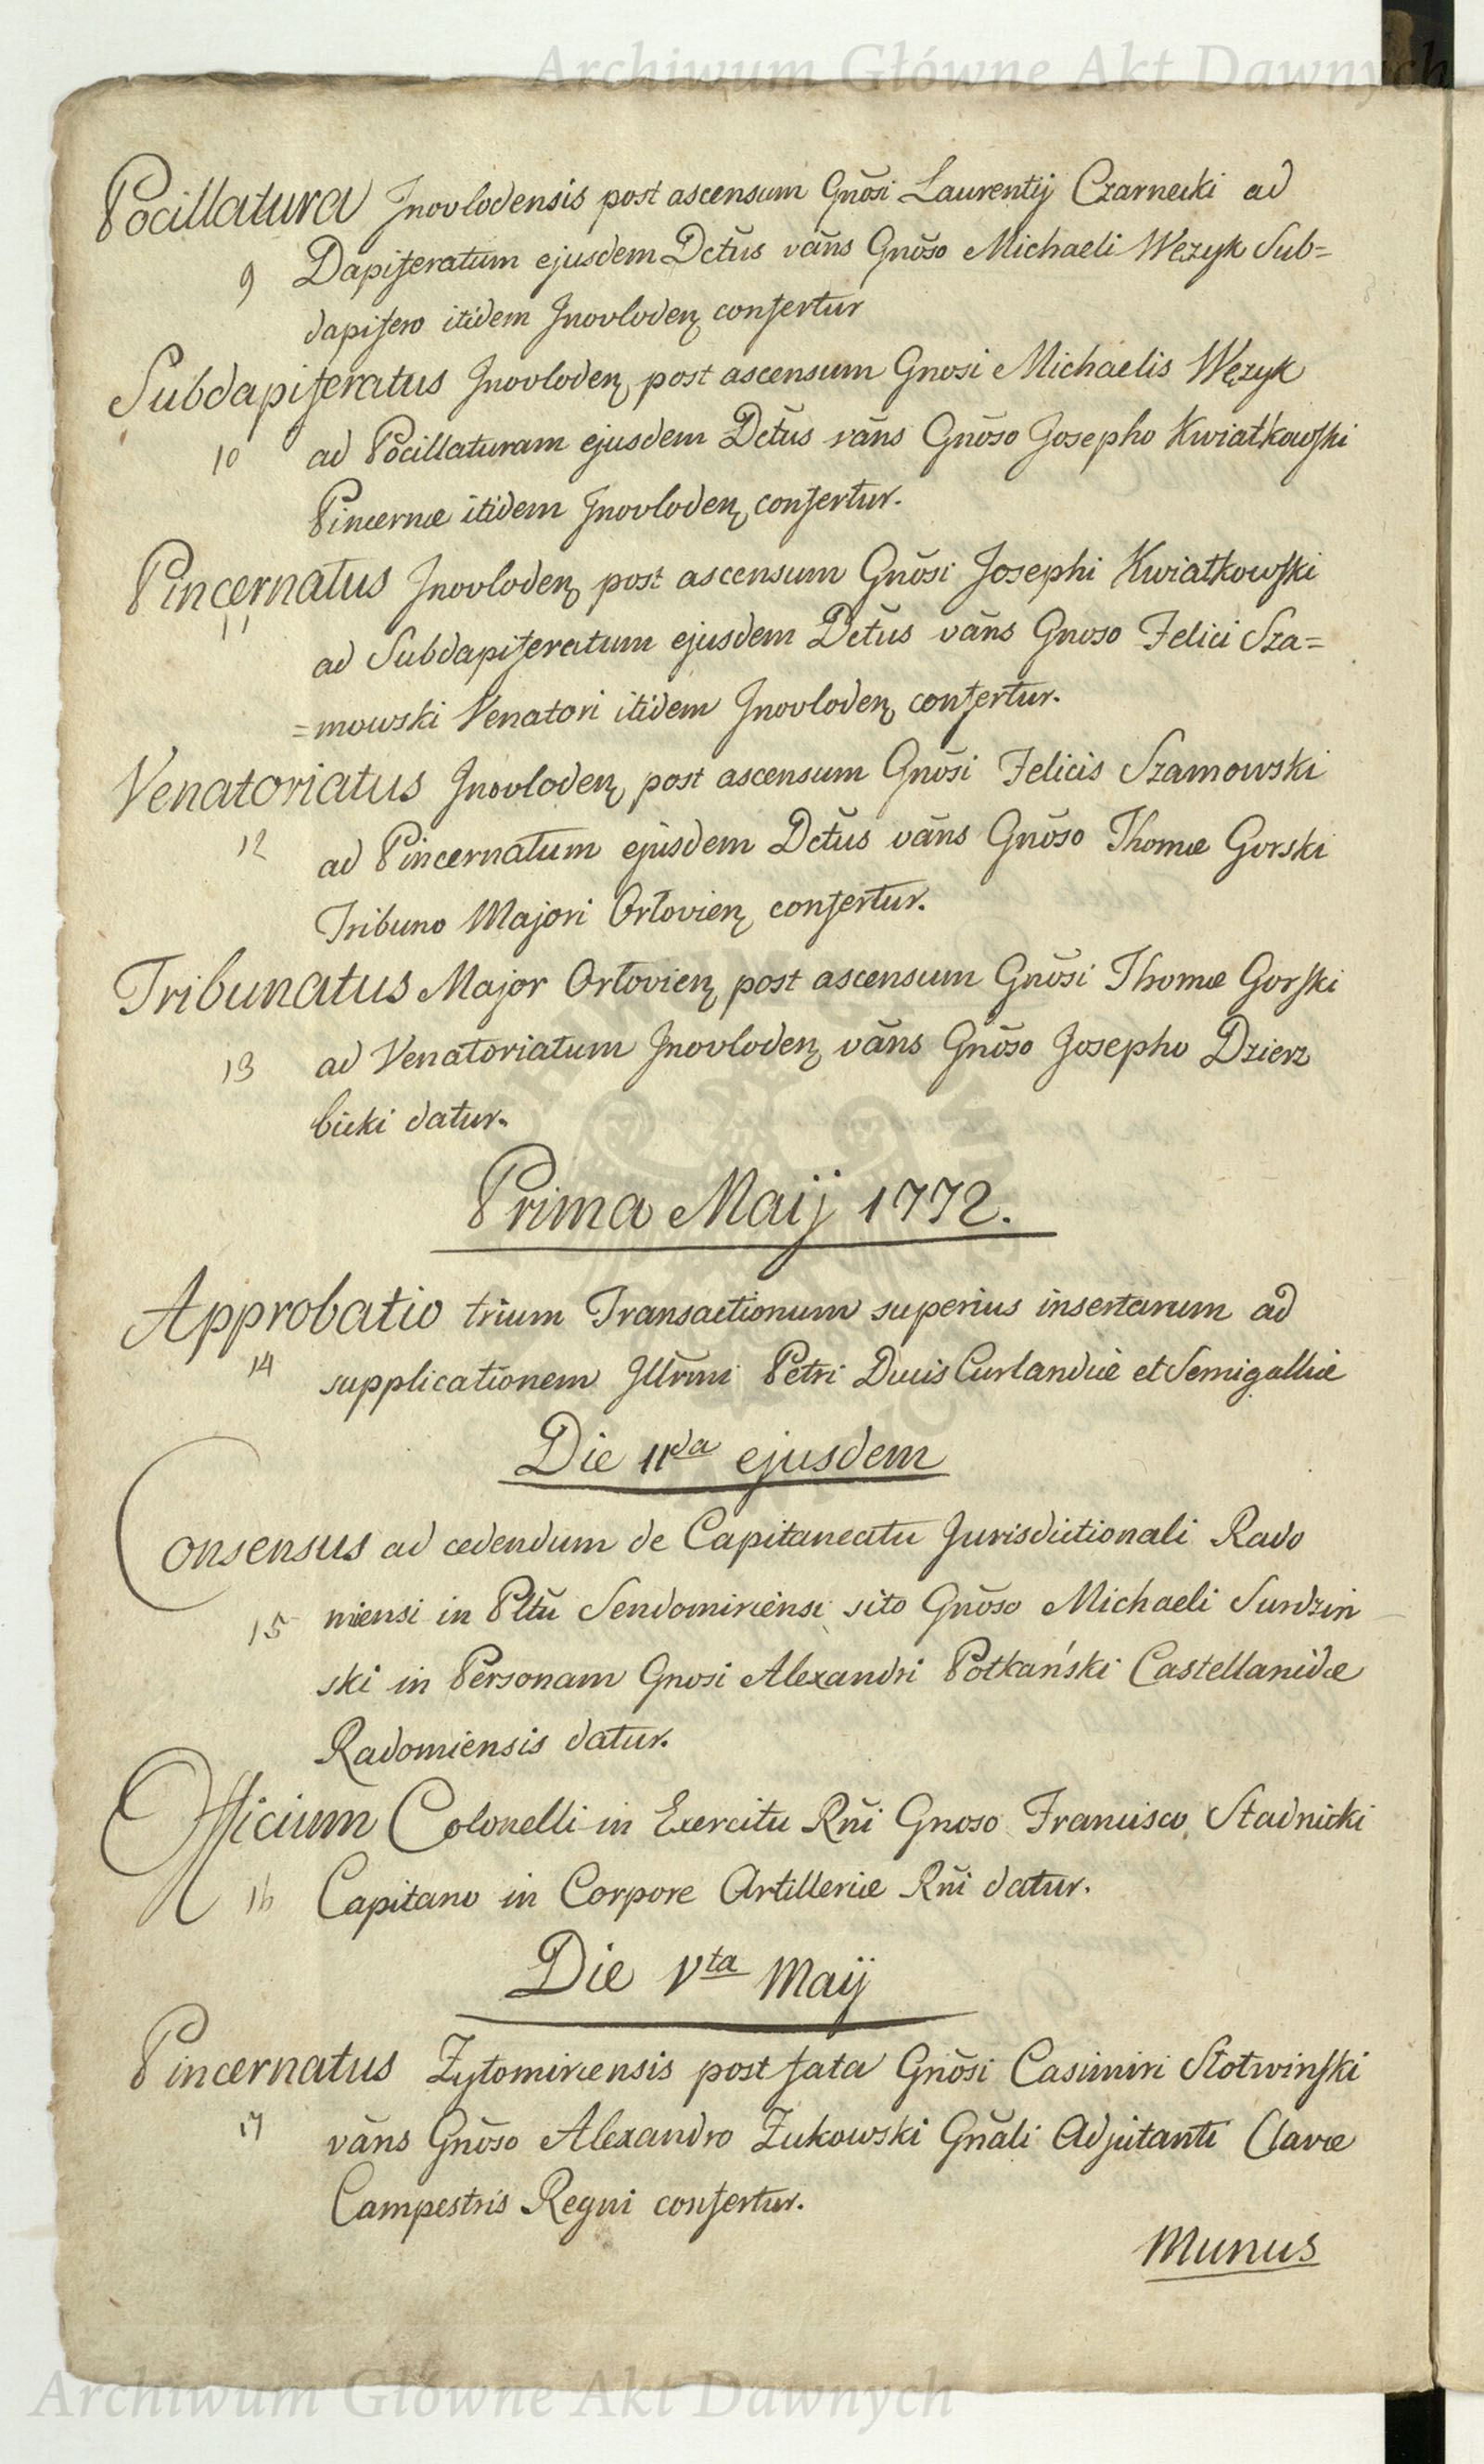 Archiwum Główne Akt Dawnych
Pocillatura Jnovlodensis post ascensum Gnõsi Laurentij Czarnecki ad
9 Dapiferatum ejusdem Dctũs vãns Gnõso Michaeli Wezyk Sub=
dapifero itidem Jnovloden̨ confertur
Subdapiferatus Jnovloden̨ post ascensum Gnosi Michaelis Węzyk
10 ad Pocillaturam ejusdem Dctũs vãns Gnõso Josepho Kwiatkowski
Pincernæ itidem Jnovloden̨ confertur.
Pincernatus Jnovloden̨ post ascensum Gnõsi Josephi Kwiatkowski
11 ad Subdapiferatum ejusdem Dctũs vãns Gnoso Felici Sza=
=mowski Venatori itidem Jnovloden̨ confertur.
Venatoriatus Jnovloden̨ post ascensum Gnõsi Felicis Szamowski
12 ad Pincernatum ejusdem Dctũs vãns Gnõso Thomæ Gorski
Tribuno Majori Orłovien̨ confertur.
Tribunatus Major Orłovien̨ post ascensum Gnõsi Thomæ Gorski
13 ad Venatoriatum Jnovloden̨ vãns Gnõso Josepho Dzierz
bicki datur.
Prima Maij 1772.
Approbatio trium Transactionum superius insertarum ad
14 supplicationem Jllr̃mi Petri Ducis Curlandiæ et Semigalliæ
Die IIda ejusdem
Consensus ad cedendum de Capitaneatu Jurisdictionali Rado
15 miensi in Pltũ Sendomiriensi sito Gnõso Michaeli Surdzin
ski in Personam Gnosi Alexandri Potkański Castellanidæ
Radomiensis datur.
Officium Colonelli in Exercitu Rñi Gnoso Francisco Stadnicki
16 Capitano in Corpore Artilleriæ Rñi datur.
Die Vta Maij
Pincernatus Zytomiriensis post fata Gnõsi Casimiri Słotwinski
17 vãns Gnõso Alexandro Zukowski Gnãli Adjutanti Clavæ
Campestris Regni confertur.
Munus
Archiwum Główne Akt Dawnych